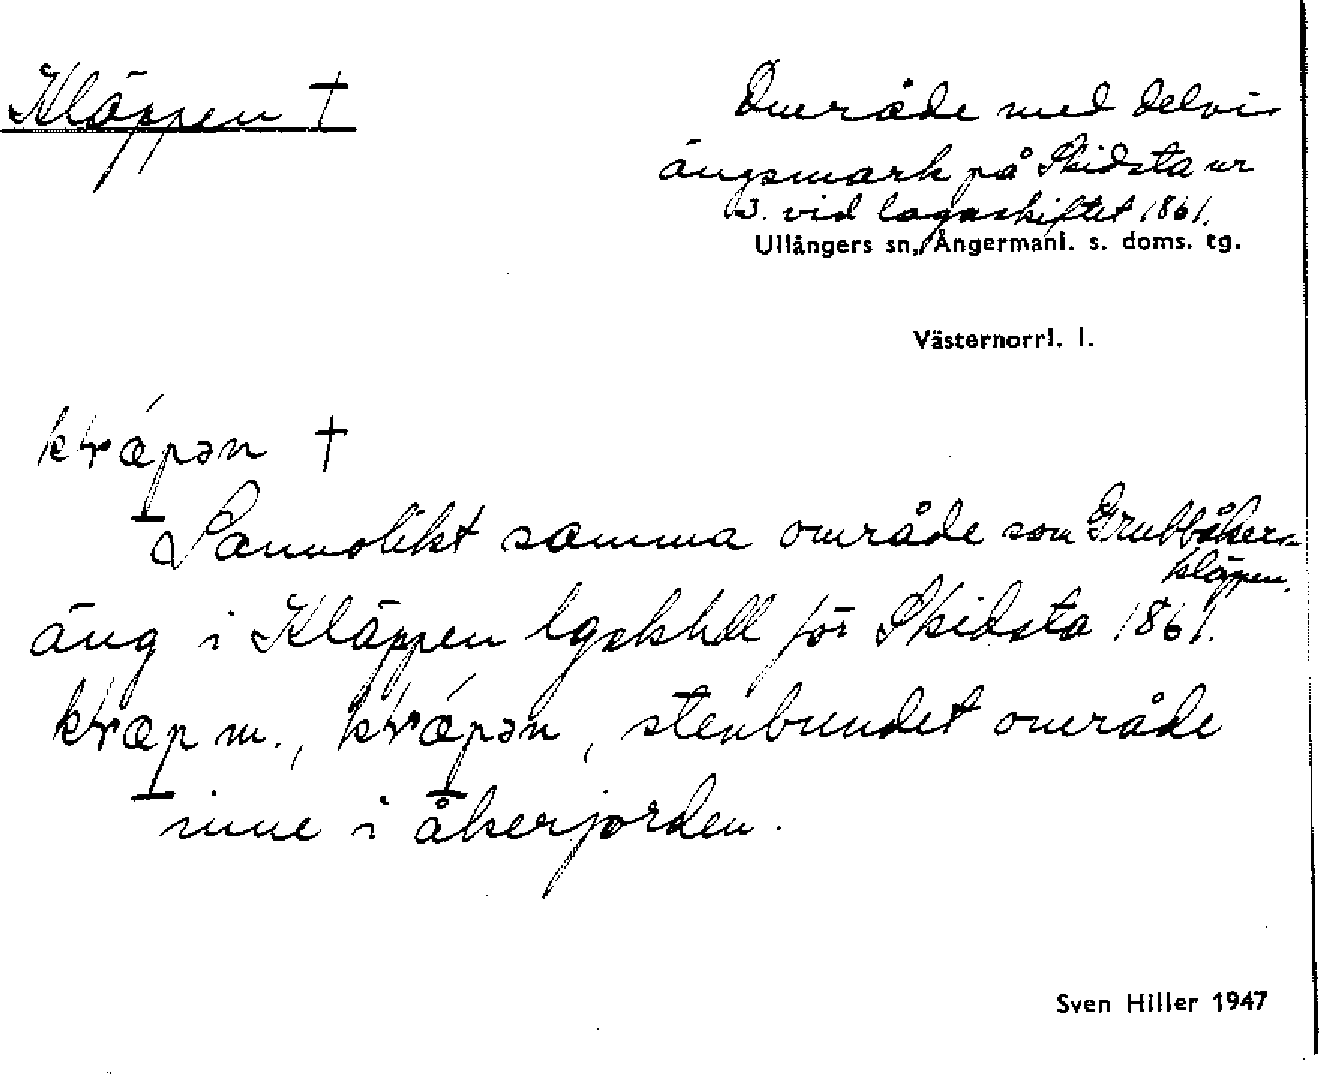 Kläppen †
Område med delvis
ängsmark på Skidsta nr
3. vid lagaskiftet 1861.
Ullångers sn, Ångermanl. s. doms. tg.
Västernorrl. l.
kɽǽpən †
Sannolikt samma område som Grubbåkers-
kläppen.
äng i Kläppen lgskhdl för Skidsta 1861.
kɽæp m., kɽǽpən, stenbundet område
inne i åkerjorden.
Sven Hiller 1947